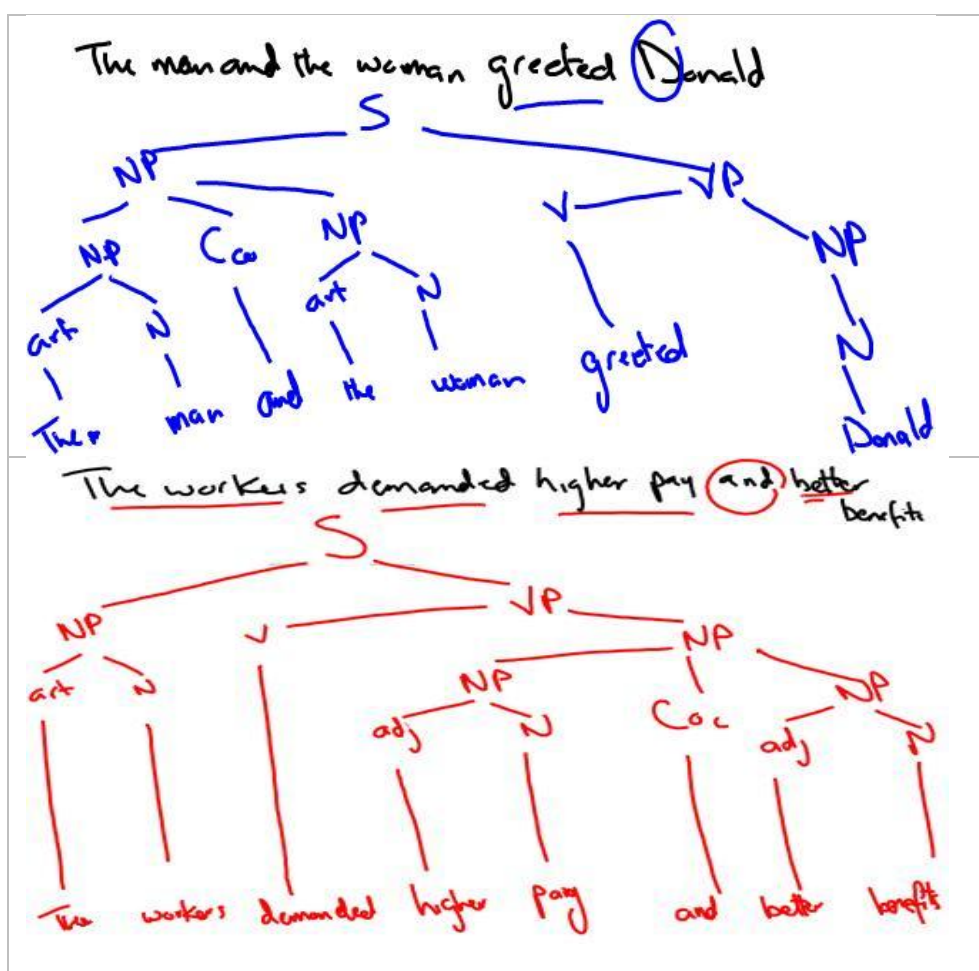 The man and the woman greeted Donald
S
NP VP
NP Coo NP V NP
art N art N N
The man and the woman greeted Donald
The workers demanded higher pay and better
benefits
S
NP V VP NP
art N NP Coc NP
adj N adj N
The workers demanded higher pay and better benefits